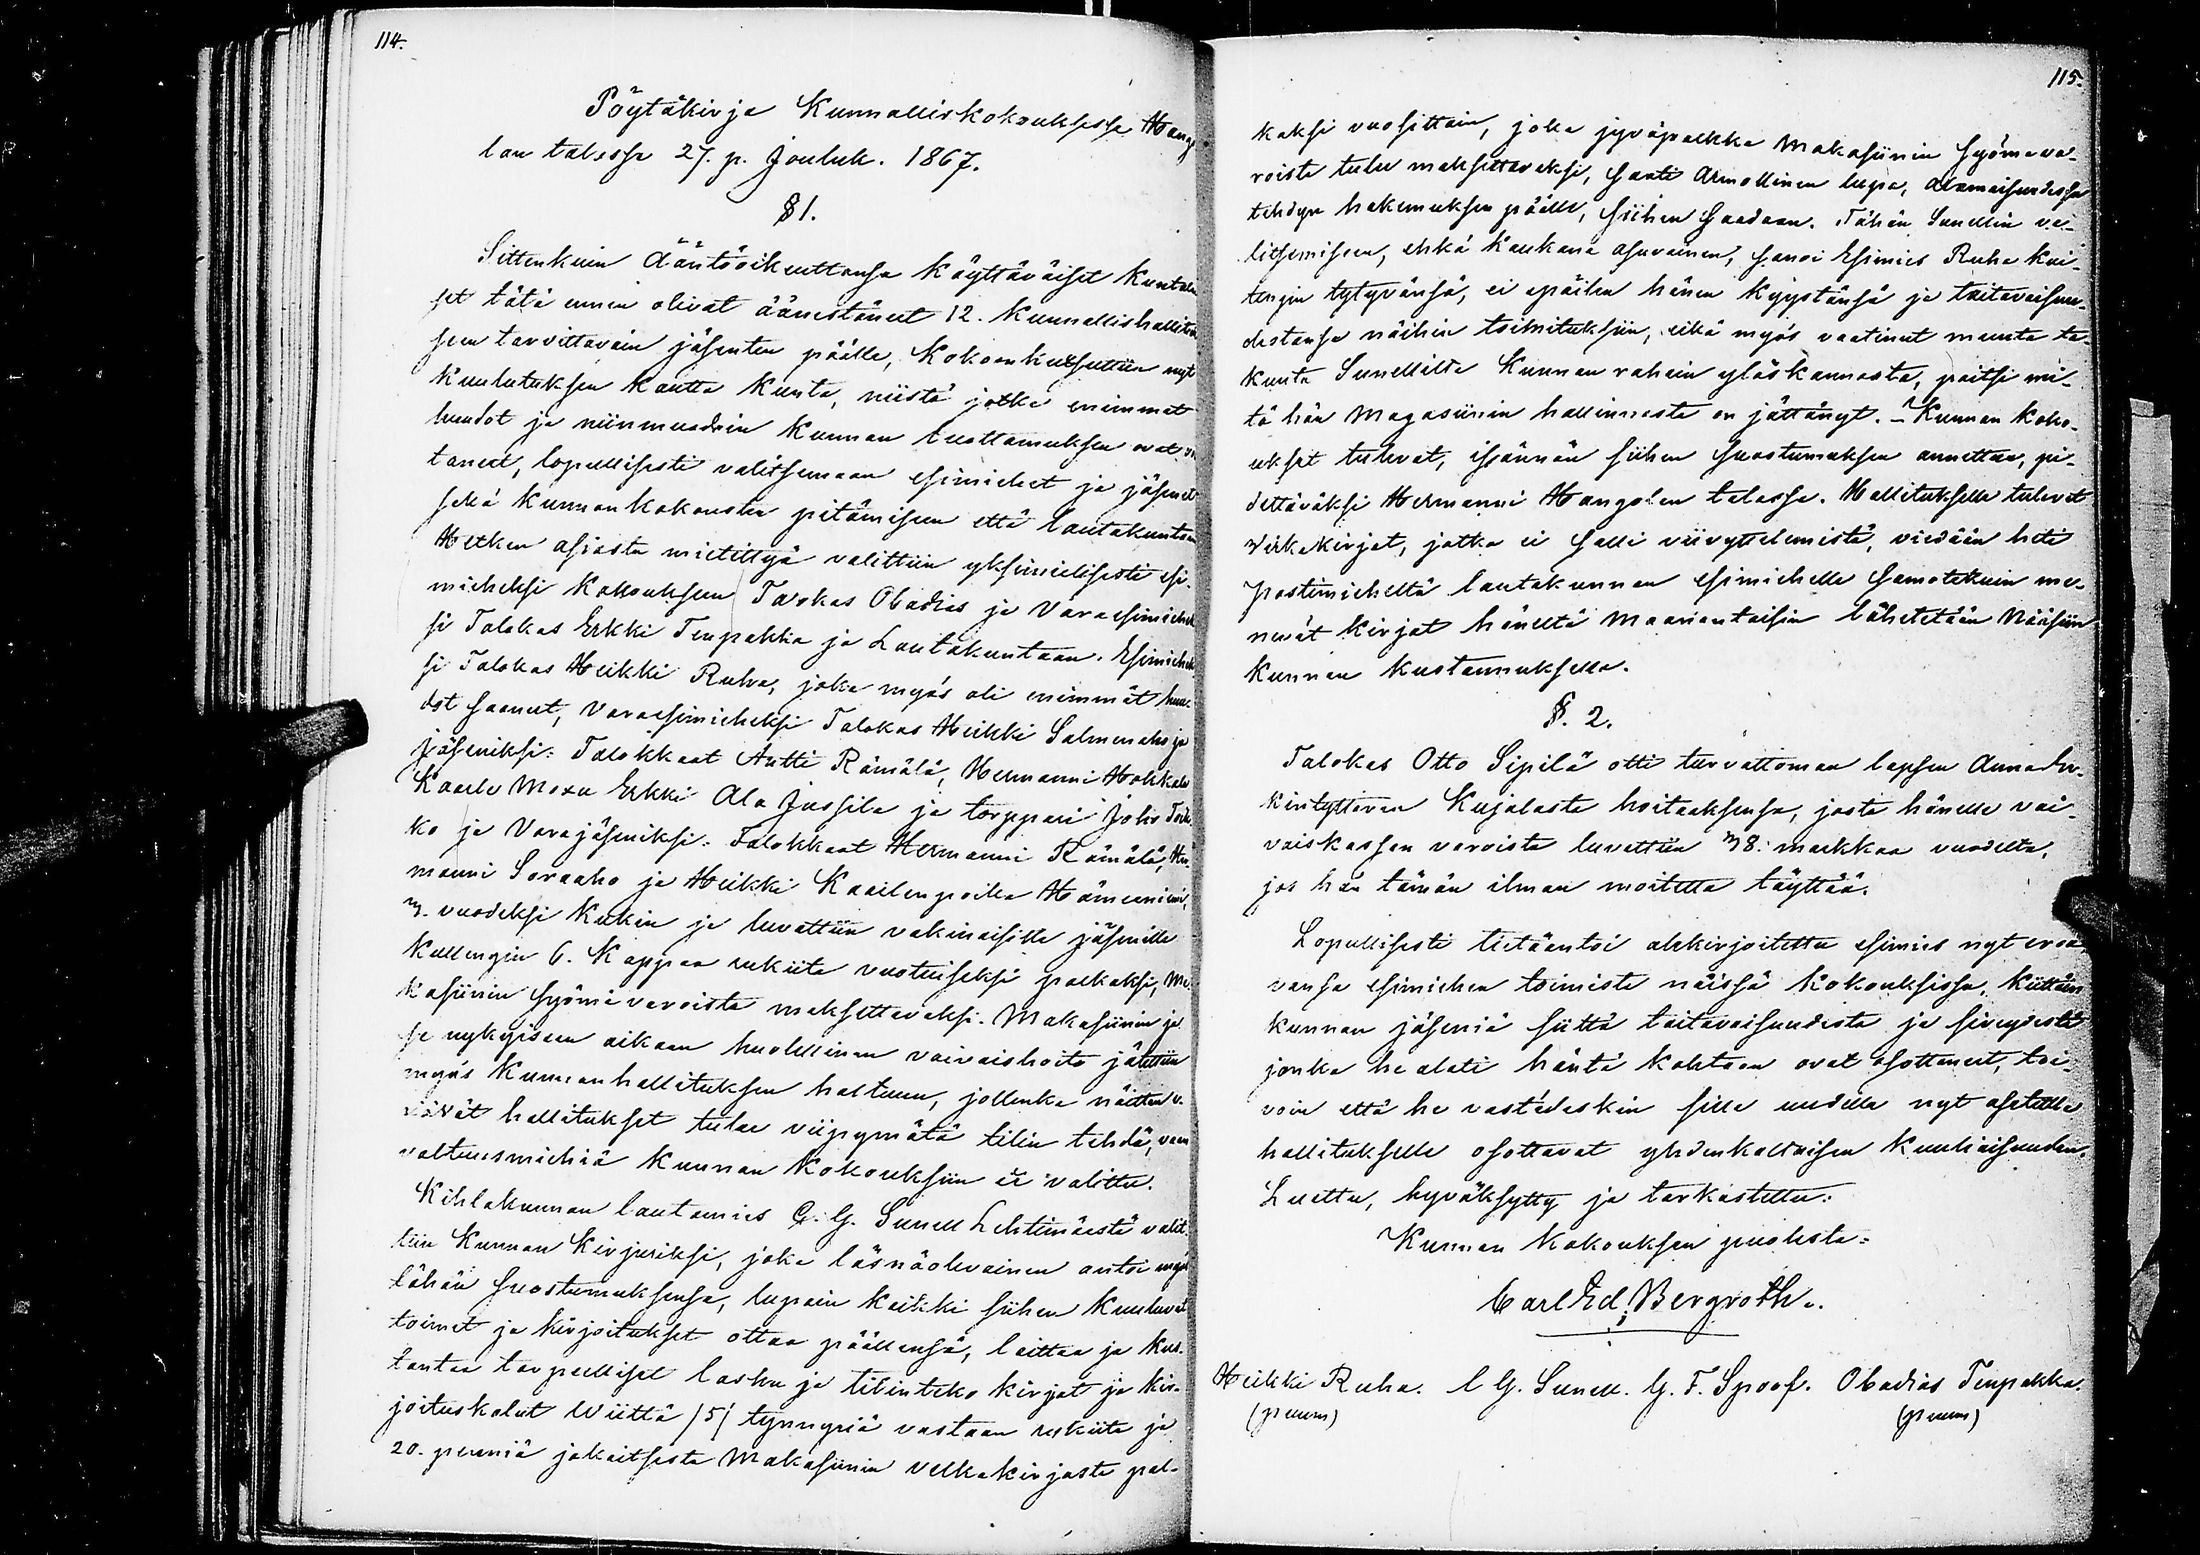 114.
Pöytäkirja Kunnalliskokouksessa Hango
lan talossa 27. p. Jouluk. 1867.
§1.
Sittenkuin ääntöoikeuttansa käyttäväiset kuntalai
set tätä ennen olivat äänestäneet 12. kunnallishallituk
seen tarvittavain jäsenten päälle, kokoonkutsuttiin nyt
kuulutuksen kautta kunta, niistä jotka enimmät
huudot ja niinmuodoin kunnan luottamuksen ovat vo
taneet, lopullisesti valitsemaan esimiehet ja jäsenet
sekä kunnankokousten pitämiseen että lautakuntaan
Hetken asiasta mietittyä valittiin yksimielisesti esi-
mieheksi kokoukseen Talokas Obadias ja Varaesimiehek
si Talokas Erkki Teupakka ja Lautakuntaan. Esimiehek
si Talokas Heikki Ruha, joka myös oli enimmät huu-
dot saanut, Varaesimieheksi Talokas Heikki Salmenaho ja
jäseniksi: Talokkaat Antti Rämälä, Hermanni Hokkala
Kaarle Moxu Erkki Ala Jussila ja torppari Joho
ko ja Varajäseniksi: Talokkaat Hermanni Rämälä, Her
manni Soraaho ja Heikki Kaarlenpoika Hämeenniemi,
3. vuodeksi kukin ja luvattiin vakinaisille jäsenille
kullengin 6. Kappaa rukiita vuotuiseksi palkaksi, Ma
kasiinin syömävaroista maksettavaksi. Makasiinin ja
se nykyiseen aikaan huolellinen vaivaishoito jätettiin
myös kunnanhallituksen haltuun, jollenka näitten v.
hallitukset tulee viipymätä tilin tehdä, vaan
valtuusmiehiä kunnan kokouksiin ei valittu.
Kihlakunnan lautamies C. G. Sunell Lehtimäestä valit
tiin kunnan kirjuriksi, joka läsnäolevainen antoi myös
tähän suostumuksensa, lupain kaikki siihen kuuluvat
toimet ja kirjoitukset ottaa päällensä, laittaa ja kus-
tantaa tarpeelliset lasku ja tilinteko kirjat ja kir-
joituskalut Wiittä /5/ tynnyriä vastaan rukiita ja
20. penniä jokaitsesta Makasiinin velkakirjasta pal-
115.
kaksi vuosittain, joka jyväpalkka Makasiinin syömäva-
roista tulee maksettavaksi, saati Armollinen lupa, alamaisuudessa
tehdyn hakemuksen päälle, siihen saadaan. Tähän Sunellin va-
litsemiseen, ehkä kaukana asuvainen, sanoi Esimies Ruha kui-
tengin tytyvänsä, ei epäillen hänen kyystänsä ja taitavaisuu-
destansa näihin toimituksiin, eikä myös vaatinut muuta ta-
kuuta Sunellilta Kunnan rahain yläskannosta, paitsi mi-
tä hän Magasiinin hallinnosta on jättänyt. – Kunnan koko-
ukset tulevat, isännän siihen suostumuksen annettua, pi-
dettäväksi Hermanni Hangolan talossa. Hallitukselle tulevat
virkakirjat, jotka ei salli viivyttelemistä, viedään heti
postimieheltä lautakunnan esimiehelle samotekuin me-
nevät kirjat häneltä maanantaisin lähetetään Wääsiin
kunnan kustannuksella.
§. 2.
Talokas Otto Sipilä otti turvattoman lapsen Anna Er-
kintyttären Kujalasta hoitaaksensa, josta hänelle vai-
vaiskassan varoista luvattiin 38. markkaa vuodelta,
jos hän tämän ilman moitetta täyttää.
Lopullisesti tietäantoi allekirjoitettu esimies nyt eroa-
vansa esimiehen toimista näissä kokouksissa, kiittäen
kunnan jäseniä siittä taitavaisuudesta ja siveydestä
jonka he alati häntä kohtaan ovat osottaneet, toi-
voin että he vastedeskin sille uudelle nyt asetetulle
hallitukselle osottavat yhdenkaltaisen kuuliaisuuden.
Luettu, hyväksytty ja tarkastettu.
Kunnan kokouksen puolesta:
Carl Ed. Bergroth.
Heikki Ruha. C G. Sunell. G. F. Spoof. Obadias Teupakka.
(puum) (puum)